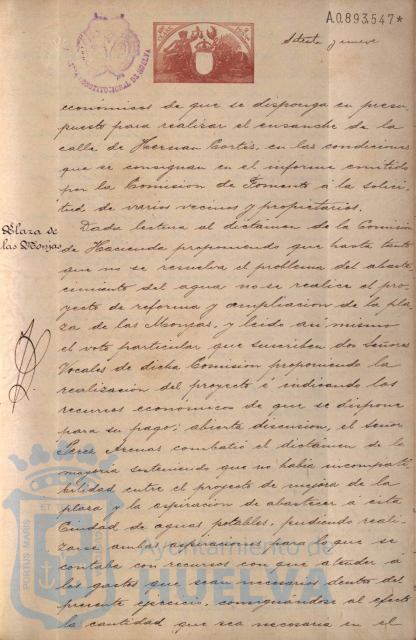 A.0.893,547*
Setenta y nueve
CONSTITUCIONAL DE HUELVA
económicos de que se disponga en presu-
puesto para realizar el ensanche de la
calle de Hernan Cortés, en las condiciones
que se consignan en el informe emitido
por la Comision de Fomento á la solici-
tud de varios vecinos y propietarios.
Plaza de
las Monjas
Dada lectura al dictámen de la Comision
de Hacienda proponiendo que hasta tanto
que no se resuelva el problema del abaste-
cimiento del agua no se realice el pro-
yecto de reforma y ampliacion de la pla-
za de las Monjas, y leido asi mismo
el voto particular que suscriben dos Señores
Vocales de dicha Comision proponiendo la
realizacion del proyecto é indicando los
recursos económicos de que se dispone
para su pago; abierta discusion, el señor
Perez Arenas combatió el dictámen de la
mayoria sosteniendo que no habia incompati-
bilidad entre el proyecto de mejora de la
plaza y la aspiracion de abastecer á esta
Ciudad de aguas potables, pudiendo reali-
zarse ambas aspiraciones para lo que se
contaba con recursos con que atender á
los gastos que sean necesarios dentro del
presente ejercicio, consignandose al efecto
la cantidad que sea necesaria en el
PORTUS MARIS ET
Ayuntamiento de
HUELVA